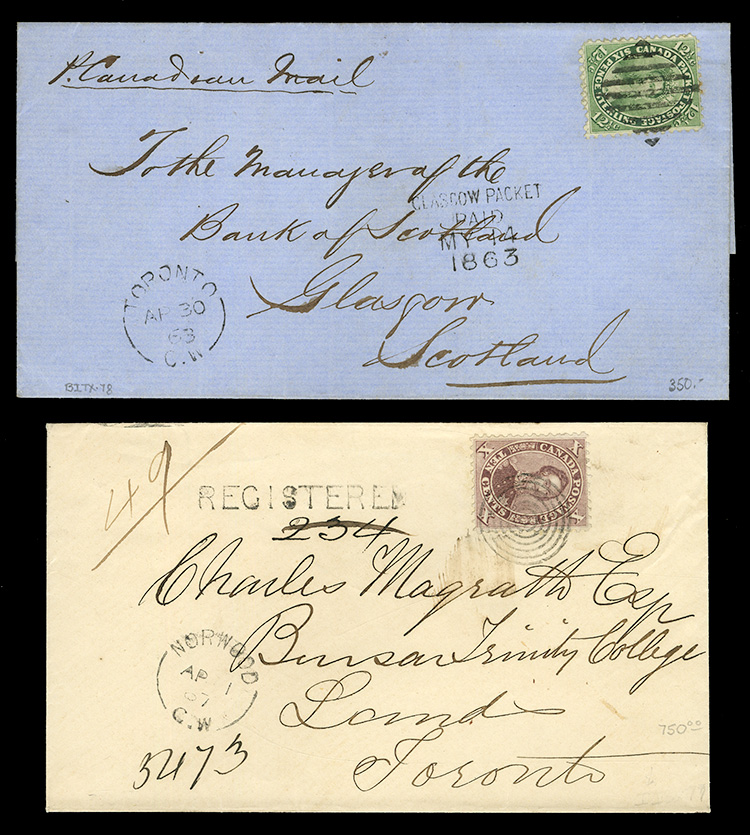 P. Canadian Mail
12½c CANADA PACKET POSTAGE 12½c SIX PENCE STG.
To the Manager of the
GLASGOW PACKET
PAID
Bank of Scotland
MY
1863
Glasgow
TORONTO
AP 30
63
C.W
Scotland
BITX-78
350.-
49
REGISTERED
234
X CANADA POSTAGE X TEN CENTS
Charles Magrath Esq
Bursar Trinity College
NORWOOD
AP 1
67
C.W
Lands
750.00
5473
Toronto